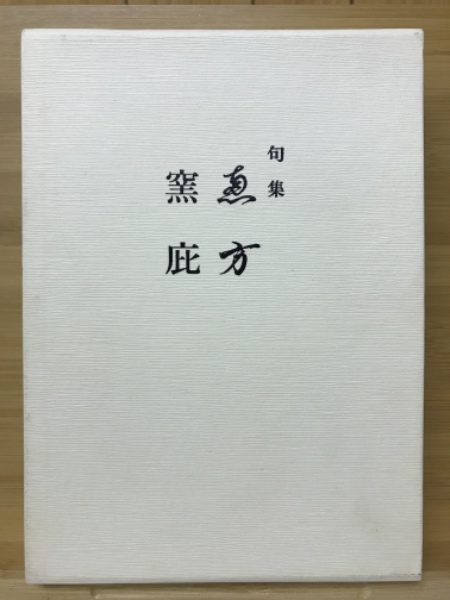 句集
恵方
窯庇